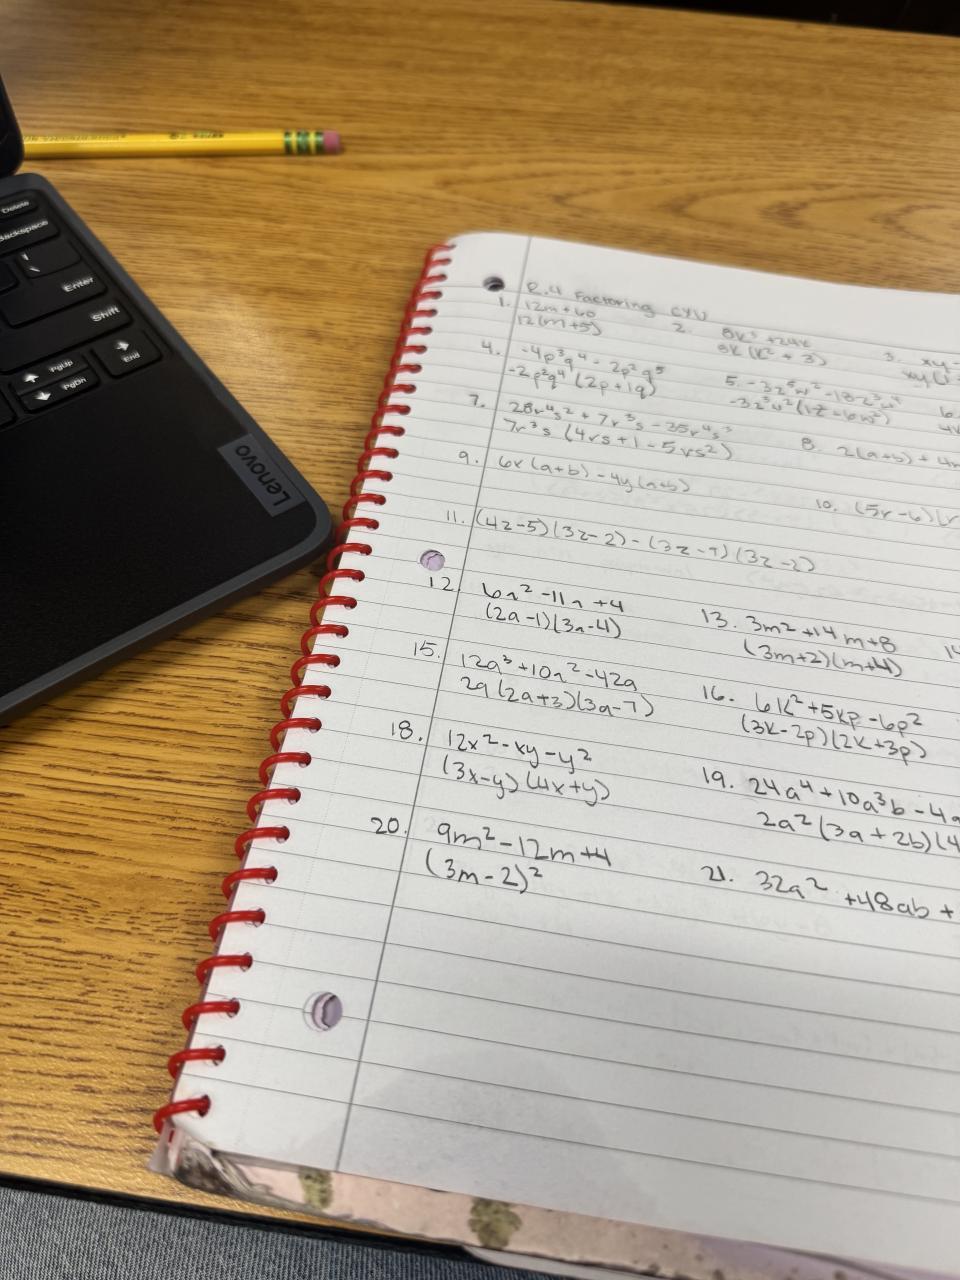 Delete
Backspace
Enter
Shift
PgUp
End
PgDn
Lenovo
R.4 Factoring CYU
1. 12m+60
12(m+5)
2. 8k³ +24k
8k(k² + 3)
3. xy-
4. -4p³q⁴ - 2p²q⁵
-2p²q⁴(2p+1q)
5. -3z⁵w² -18z³w⁴
6.
7. 28r⁴s² + 7r³s - 35r⁴s³
7r³s (4rs+1-5rs²)
8. 2(a+b) + 4m
9. 6x(a+b) - 4y(a+b)
10. (5r-6)(r
11. (4z-5)(3z-2) - (3z-9)(3z-2)
12. 6a² -11a +4
(2a-1)(3a-4)
13. 3m²+14m+8
(3m+2)(m+4)
14
15. 12a³+10a²-42a
2a(2a+3)(3a-7)
16. 6k²+5kp-6p²
(3k-2p)(2k+3p)
18. 12x²-xy-y²
(3x-y)(4x+y)
19. 24a⁴+10a³b-4a
2a²(3a+2b)(4
20. 9m²-12m+4
(3m-2)²
21. 32a² +48ab+